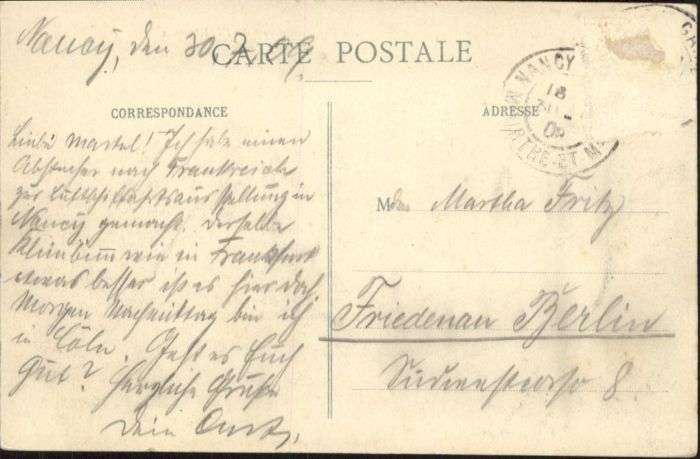 Nancy, den 30.7.09.
CARTE POSTALE
CORRESPONDANCE
Liebe Martel! Ich habe einen
Abstecher nach Frankreich
zur Luftschiffahrtsausstellung in
Nancy gemacht. Derselbe
Klimbim wie in Frankfurt
etwas besser ist es hier doch
Morgen Nachmittag bin ich
in Cöln. Geht es Euch
Gut? Herzliche Grüße
Dein
NANCY
18
MEURTHE-ET-M
ADRESSE
M Martha Fritz
Friedenau Berlin
8.